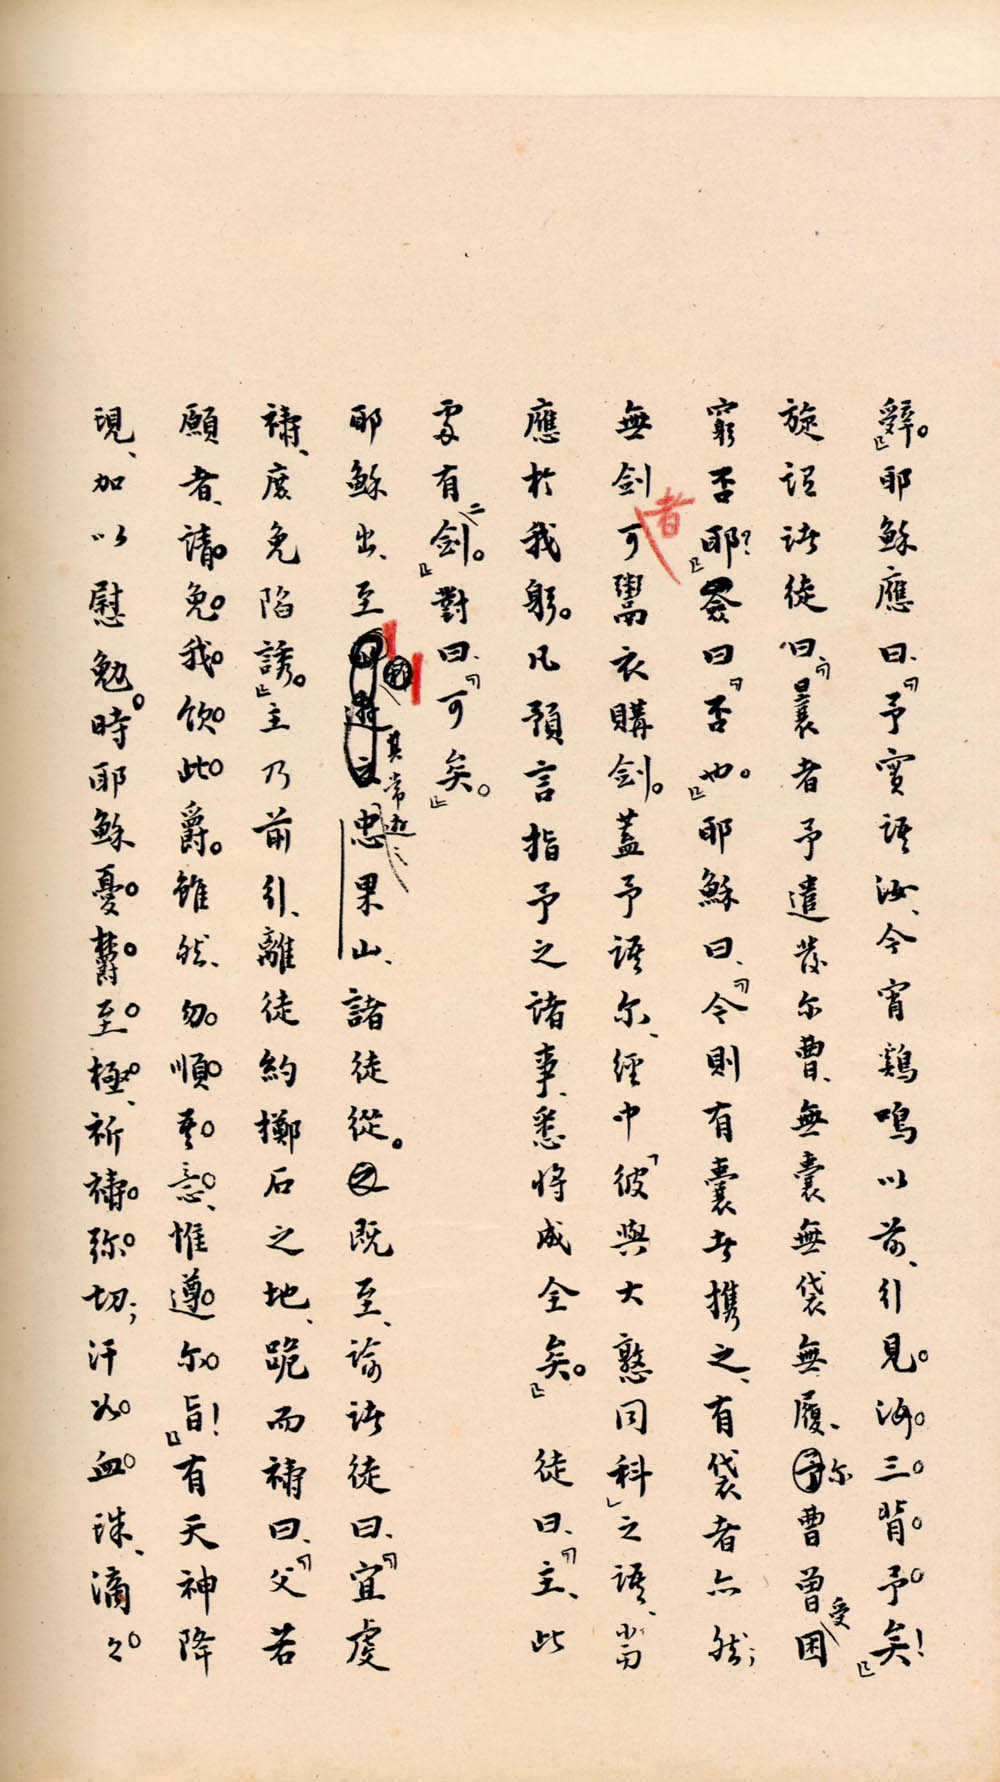 辭。』耶穌應曰、『予實語汝、今宵鷄鳴以前、引見。汝。三。背。予。矣！』
旋語諸徒曰、『曩者予遣發尔曹、無囊無袋無履、尔曹曾受困
窮否耶？』僉曰、『否也。』耶穌曰、『今則有囊者攜之、有袋者亦然；
無劍者可鬻衣購劍。蓋予語尔、經中「彼與大憝同科」之語、當
應於我躬。凡預言指予之諸事、悉將成全矣。』 徒曰、『主、此
處有二劍。』對曰、『可矣。』
耶穌出、至其常遊之忠果山、諸徒從。既至、諭諸徒曰、『宜虔
禱、庶免陷誘。』主乃前引、離徒約擲石之地、跪而禱曰、『父若
願者、請。免。我。飲。此。爵。雖然、勿。順。吾。意。惟遵。尔。旨！』有天神降
現、加以慰勉。時耶穌憂。鬱。至。極。、祈禱。弥。切；汗如。血。珠、滴々。